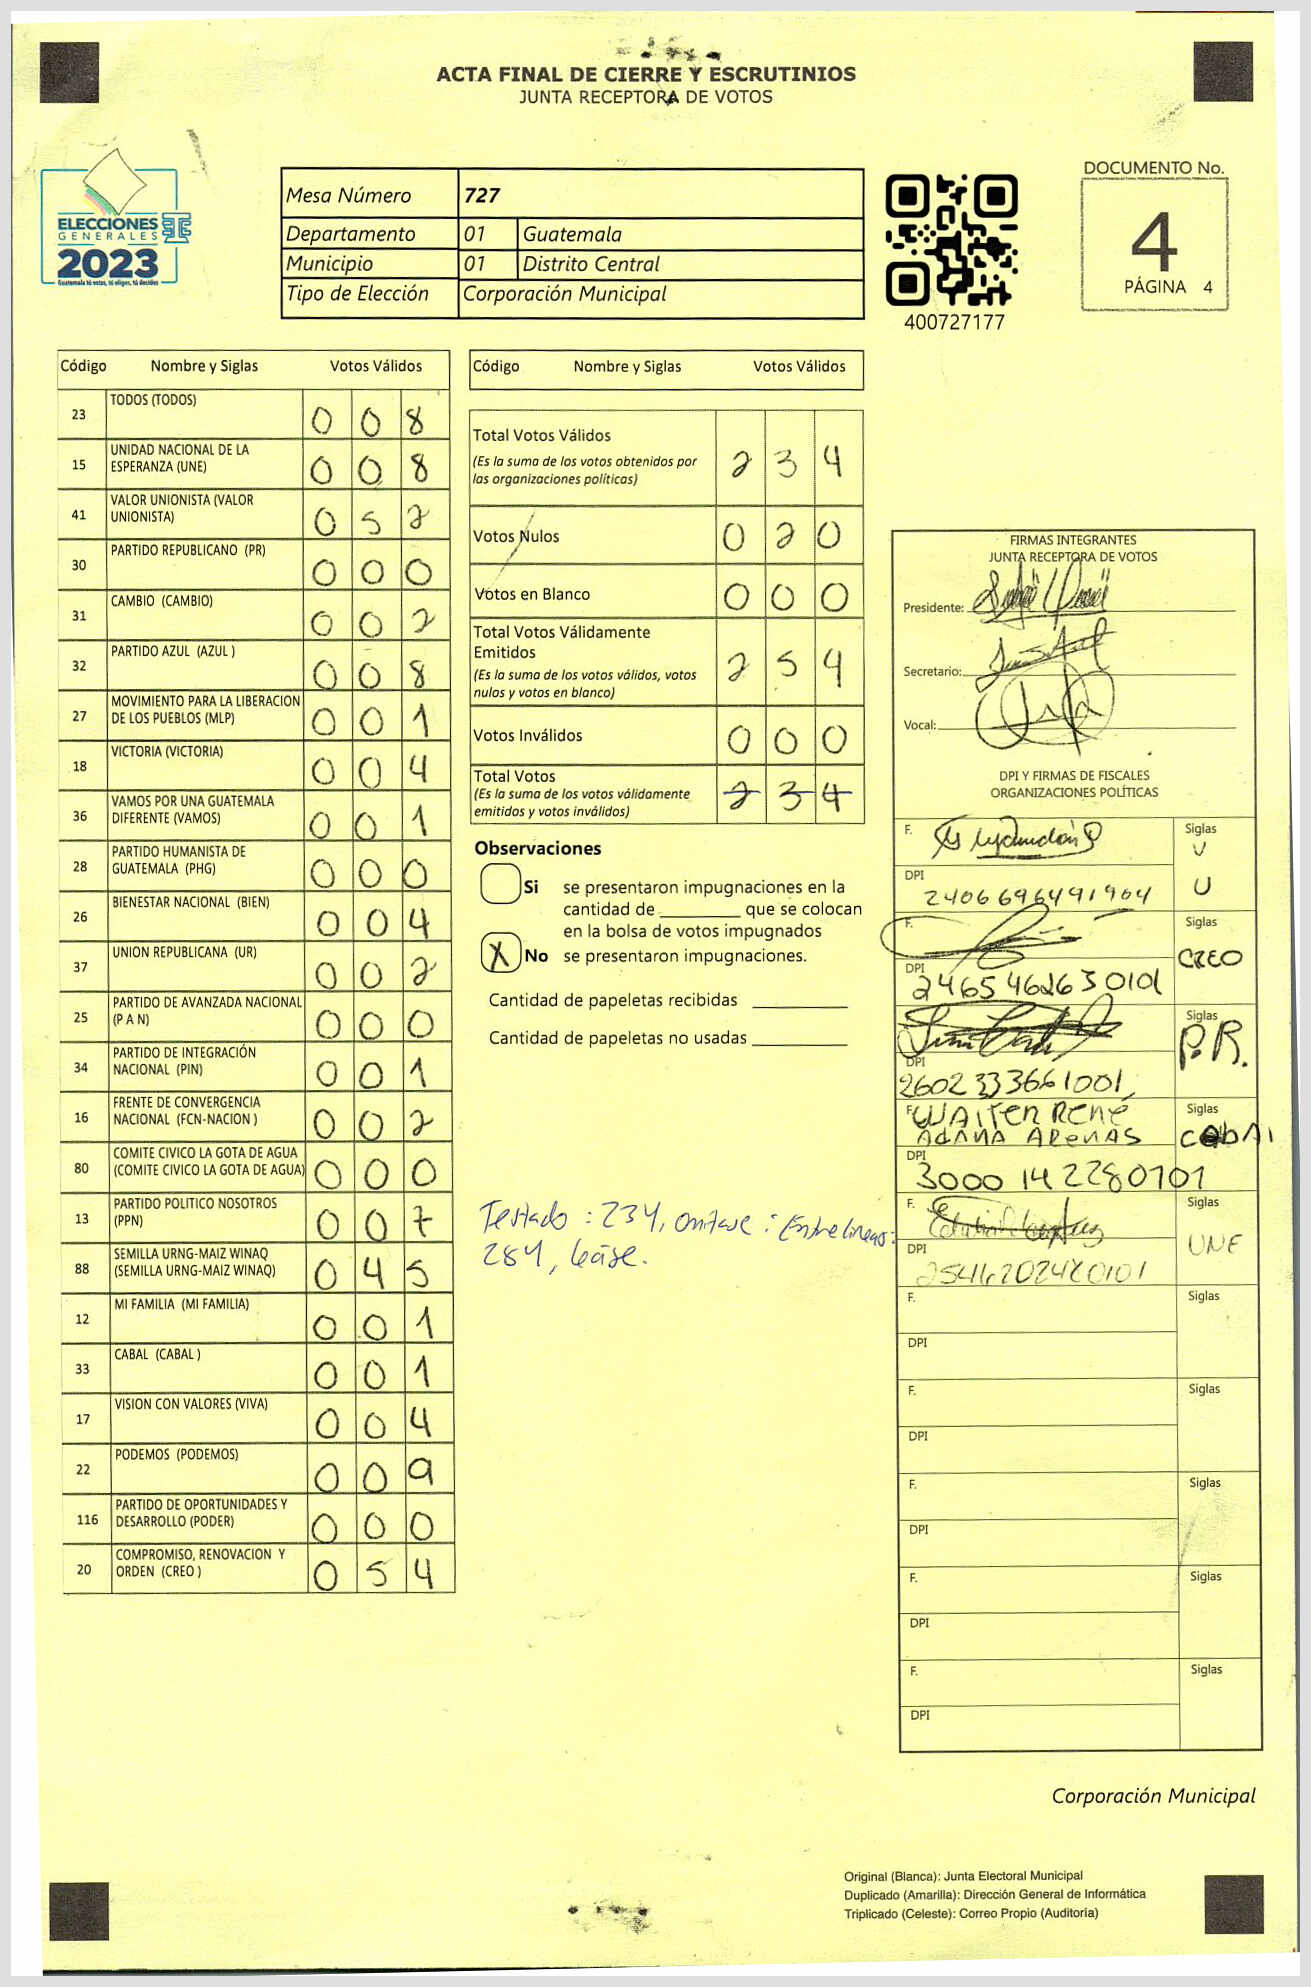 ACTA FINAL DE CIERRE Y ESCRUTINIOS
JUNTA RECEPTORA DE VOTOS
ELECCIONES
GENERALES
2023
Guatemala tú votas, tú eliges, tú decides
Mesa Número 727
Departamento 01 Guatemala
Municipio 01 Distrito Central
Tipo de Elección Corporación Municipal
400727177
DOCUMENTO No.
4
PÁGINA 4
Código Nombre y Siglas Votos Válidos
23 TODOS (TODOS) 0 0 8
15 UNIDAD NACIONAL DE LA
ESPERANZA (UNE) 0 0 8
41 VALOR UNIONISTA (VALOR
UNIONISTA) 0 5 2
30 PARTIDO REPUBLICANO (PR) 0 0 0
31 CAMBIO (CAMBIO) 0 0 2
32 PARTIDO AZUL (AZUL ) 0 0 8
27 MOVIMIENTO PARA LA LIBERACION
DE LOS PUEBLOS (MLP) 0 0 1
18 VICTORIA (VICTORIA) 0 0 4
36 VAMOS POR UNA GUATEMALA
DIFERENTE (VAMOS) 0 0 1
28 PARTIDO HUMANISTA DE
GUATEMALA (PHG) 0 0 0
26 BIENESTAR NACIONAL (BIEN) 0 0 4
37 UNION REPUBLICANA (UR) 0 0 2
25 PARTIDO DE AVANZADA NACIONAL
(P A N) 0 0 0
34 PARTIDO DE INTEGRACIÓN
NACIONAL (PIN) 0 0 1
16 FRENTE DE CONVERGENCIA
NACIONAL (FCN-NACION ) 0 0 2
80 COMITE CIVICO LA GOTA DE AGUA
(COMITE CIVICO LA GOTA DE AGUA) 0 0 0
13 PARTIDO POLITICO NOSOTROS
(PPN) 0 0 7
88 SEMILLA URNG-MAIZ WINAQ
(SEMILLA URNG-MAIZ WINAQ) 0 4 5
12 MI FAMILIA (MI FAMILIA) 0 0 1
33 CABAL (CABAL ) 0 0 1
17 VISION CON VALORES (VIVA) 0 0 4
22 PODEMOS (PODEMOS) 0 0 9
116 PARTIDO DE OPORTUNIDADES Y
DESARROLLO (PODER) 0 0 0
20 COMPROMISO, RENOVACION Y
ORDEN (CREO ) 0 5 4
Código Nombre y Siglas Votos Válidos
Total Votos Válidos 2 3 4
(Es la suma de los votos obtenidos por
las organizaciones políticas)
Votos Nulos 0 2 0
Votos en Blanco 0 0 0
Total Votos Válidamente
Emitidos 2 5 4
(Es la suma de los votos válidos, votos
nulos y votos en blanco)
Votos Inválidos 0 0 0
Total Votos 2 3 4
(Es la suma de los votos válidamente
emitidos y votos inválidos)
Observaciones
Si se presentaron impugnaciones en la
cantidad de ________ que se colocan
en la bolsa de votos impugnados
X No se presentaron impugnaciones.
Cantidad de papeletas recibidas
Cantidad de papeletas no usadas
Testado : 234, omitase : Entrelineas:
254, léase.
FIRMAS INTEGRANTES
JUNTA RECEPTORA DE VOTOS
Presidente:
Secretario:
Vocal:
DPI Y FIRMAS DE FISCALES
ORGANIZACIONES POLÍTICAS
F. Siglas
V
U
DPI
2406696491904
F. Siglas
CREO
DPI
2465462630101
Siglas
P.R.
DPI
2602333661001,
F. WALTER RENÉ Siglas
ADANA ARENAS CABAL
DPI
3000142280101
F. Siglas
UNE
DPI
25416202420101
F. Siglas
DPI
F. Siglas
DPI
F. Siglas
DPI
F. Siglas
DPI
F. Siglas
DPI
Corporación Municipal
Original (Blanca): Junta Electoral Municipal
Duplicado (Amarilla): Dirección General de Informática
Triplicado (Celeste): Correo Propio (Auditoría)